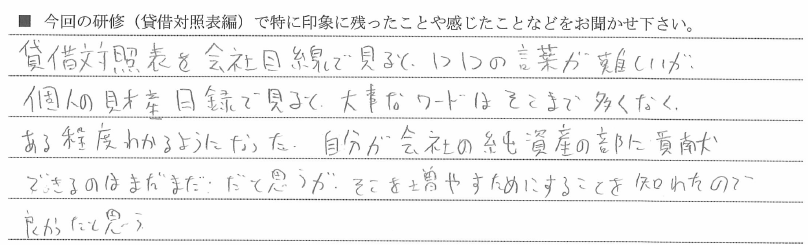 ■ 今回の研修（貸借対照表編）で特に印象に残ったことや感じたことなどをお聞かせ下さい。
貸借対照表を会社目線で見ると、1つ1つの言葉が難しいが、
個人の財産目録で見ると、大事なワードはそこまで多くなく、
ある程度わかるようになった。自分が会社の純資産の部に貢献
できるのはまだまだ、だと思うが、そこを増やすためにすることを知れたので
良かったと思う